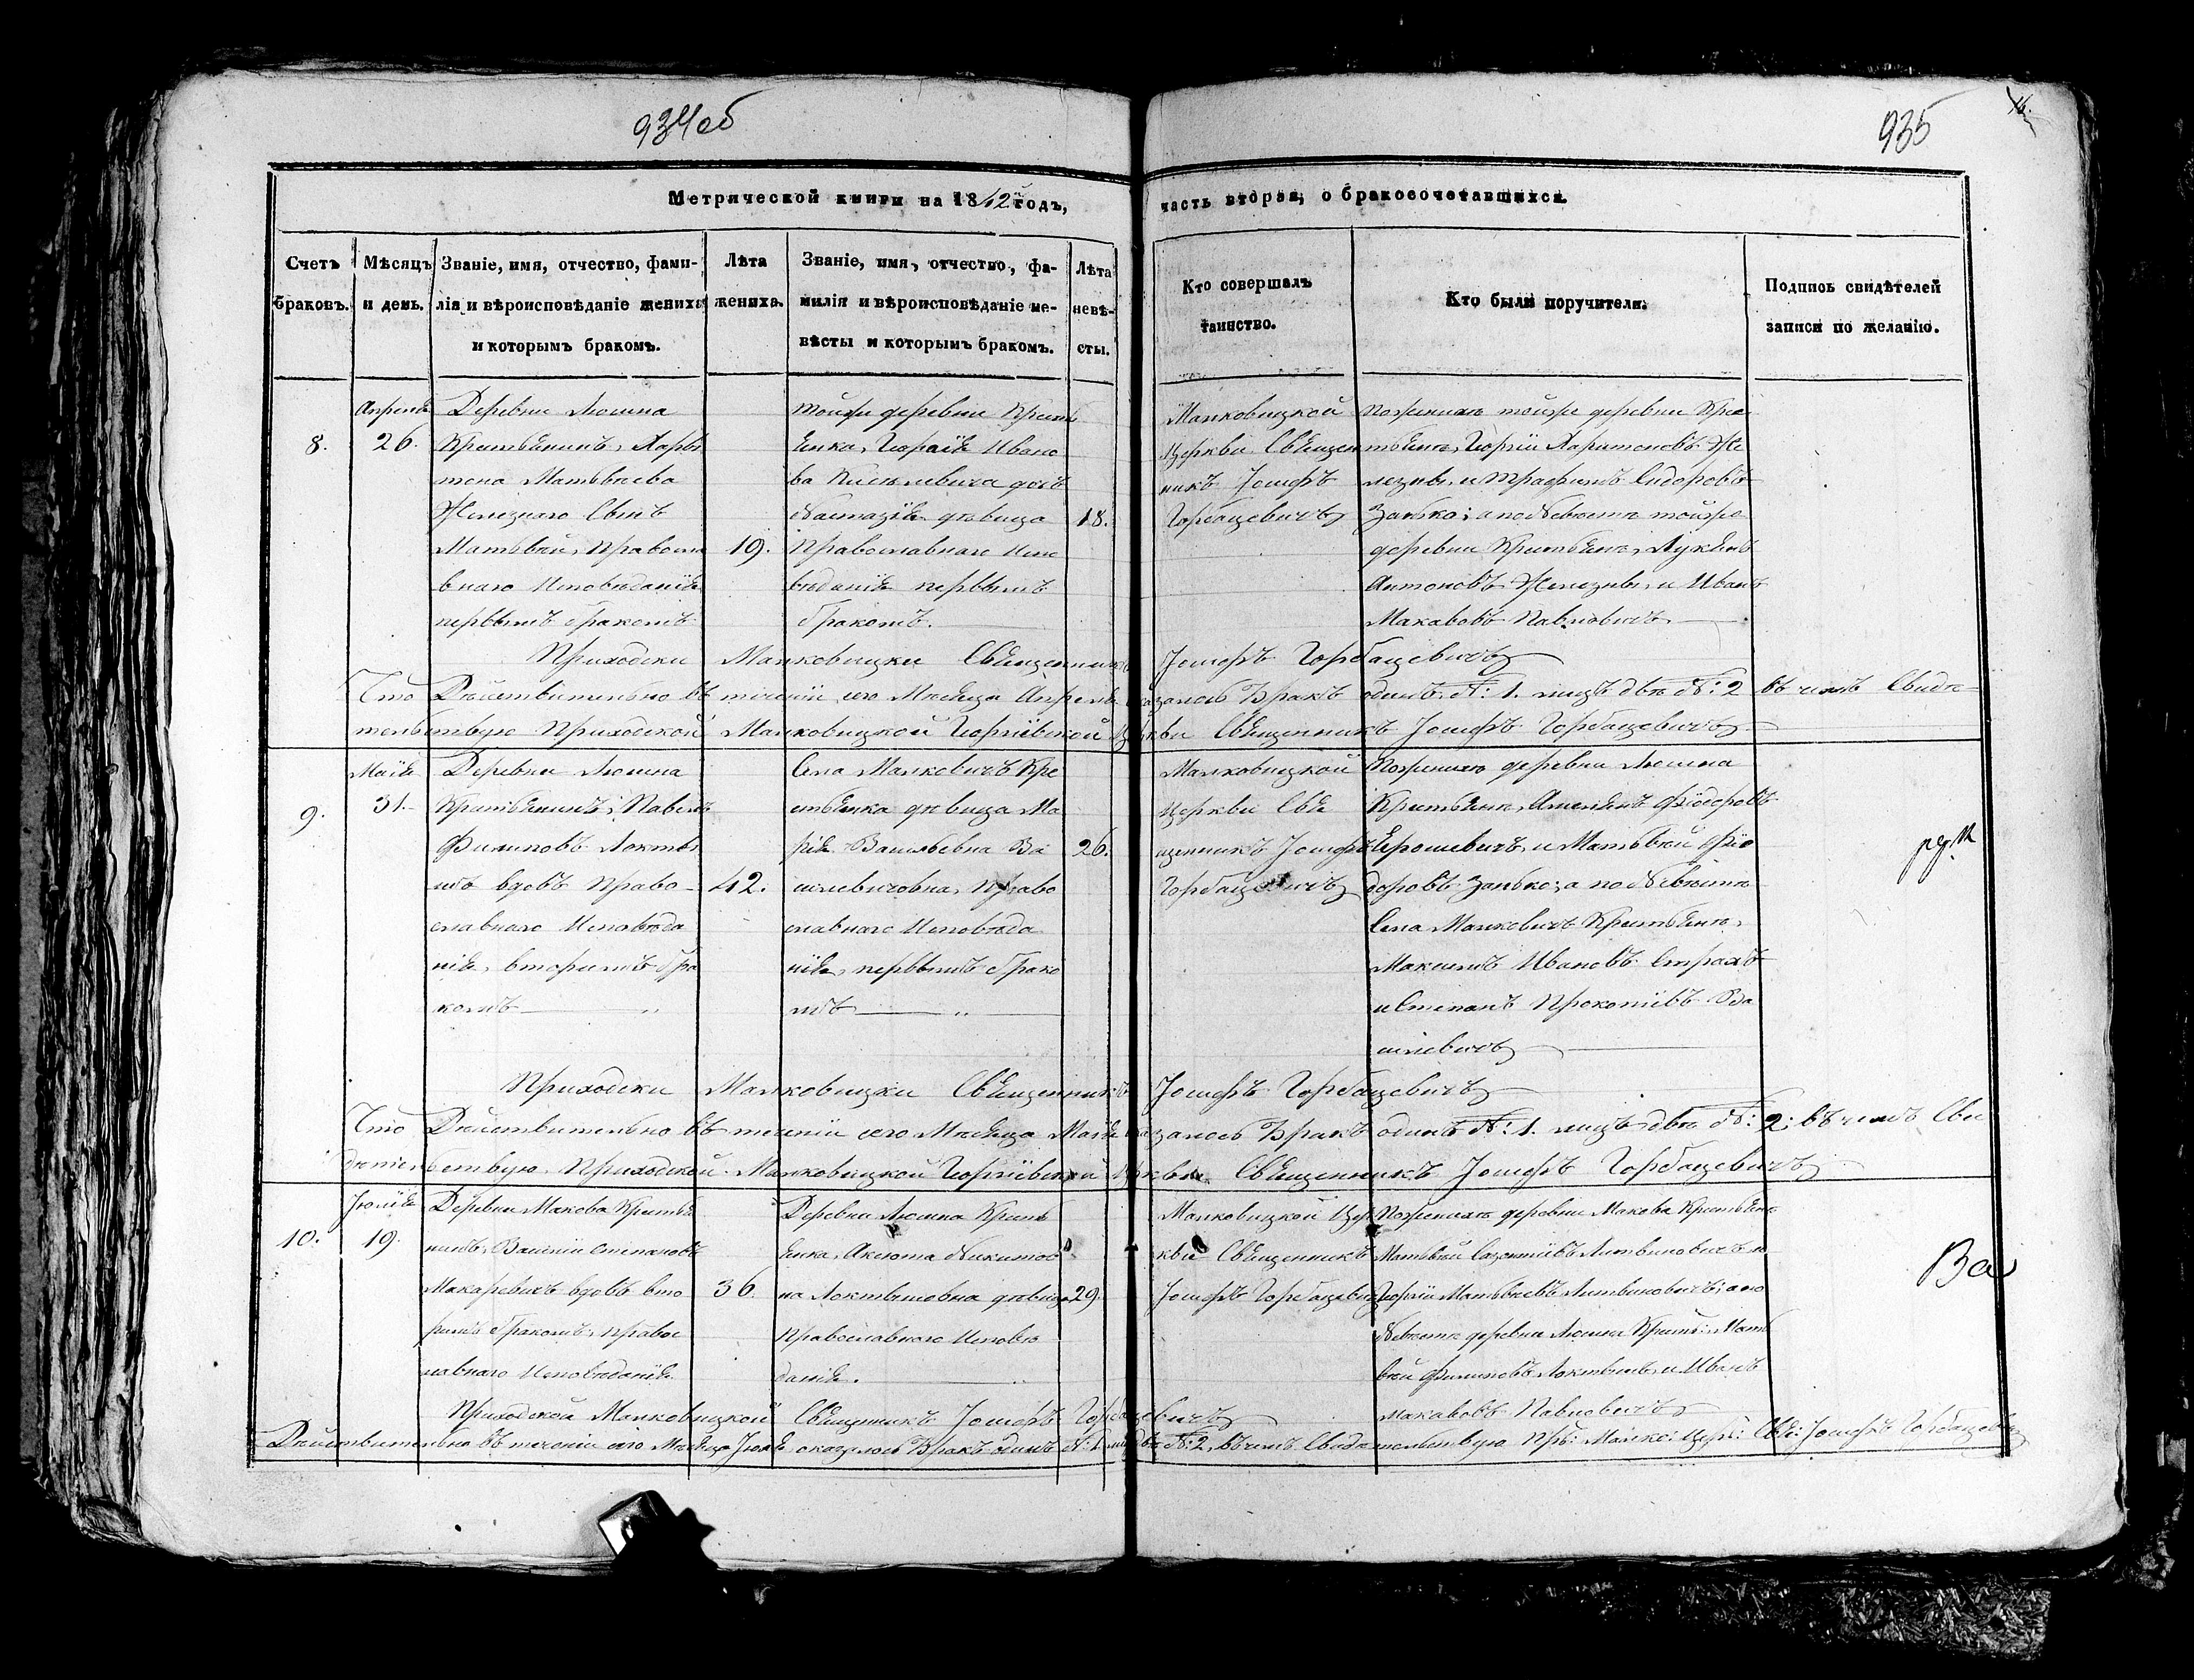 934об
935
Метрической книги на 1842 годъ,
часть вторая, о бракосочетавшихся.
Счетъ браковъ.
Мѣсяцъ и день.
Званіе, имя, отчество, фами-
лія и вѣроисповѣданіе жениха
и которымъ бракомъ.
Лѣта жениха.
Званіе, имя, отчество, фа-
милія и вѣроисповѣданіе не-
вѣсты и которымъ бракомъ.
Лѣта невѣ-
сты.
Кто совершалъ
таинство.
Кто были поручители.
Подпись свидѣтелей
записи по желанію.
8.
26.
Деревни Люшна
Хары
тона Матвѣева
Железнаго Сынъ
Матвѣй, Правосла
внаго Исповѣданія
первымъ бракомъ
19.
тойже деревни Крест
янка, Георгія Ивано
ва Киселевича дочь
Настазія дѣвица
Православнаго Испо
вѣданія первымъ
бракомъ.
18.
Малковицкой
Церкви Священ
никъ Іосифъ
Горбацевичъ
Поженихѣ тойже деревни Кре
Георгій Харитоновъ Же
лезны, и Трафимъ Сидоровъ
Занько; а по Невѣсте тойже
деревни
Антоновъ Железны, и Иванъ
Макавовъ Павловичъ
Приходски Малковицки Священникъ Іосифъ Горбацевичъ
Что Действительно въ теченіи сего Месяца Апреля оказалось Бракъ одинъ N: 1. лицъ две N: 2 въ чемъ Свиде-
тельствую Приходской Малковицкой Георгіевской Церкви Священникъ Іосифъ Горбацевичъ
9.
Маія
31.
Деревни Люшна
Павелъ
Филиповъ Локты
шъ вдовъ Право-
славнаго Исповѣда
нія, вторимъ бра
комъ
42.
Села Малковичъ Кре
стьянка дѣвица Ма
рія Васильевна Ва
шлевичовна, Право
славнаго Исповѣда
нія, первымъ брако
мъ
26.
Малковицкой
Церкви Свя
щенникъ Іосифъ
Горбацевичъ
Поженихѣ деревни Люшна
Фіодоровъ
Ерошевичъ, и Матвѣй Фіо
доровъ Занько; а по Невѣсте
Села Малковичъ
Максимъ Ивановъ Страхъ
и Степанъ Прокопіевъ Ва
шлевичъ
Приходски Малковицки Священникъ Іосифъ Горбацевичъ
Что Действительно въ теченіи сего Месяца Маія оказалось Бракъ одинъ N: 1. лицъ две N: 2: въ чемъ Сви
детельствую Приходской Малковицкой Георгіевской Церкви Священникъ Іосифъ Горбацевичъ
10.
19.
Деревни Макова Крестья
нинъ, Василій Степановъ
Макаревичъ вдовъ вто
римъ бракомъ, Правос
лавнаго Исповѣданія
36.
Деревни Люшна Крест
янка, Аксюта Никитов
на Локтышовна дѣвица
Православнаго Исповѣ
данія.
29.
Малковицкой Цер
кви Священникъ
Іосифъ Горбацевичъ
Поженихѣ деревни Макова
Матвѣй Литвиновичъ и
Георгій Матвѣевъ Литвиновичъ; а по
Невѣсте деревни Люшна Крест: Мат
вѣй Филиповъ Локтышъ, и Иванъ
Макавовъ Павловичъ
Приходской Малковицкой Священникъ Іосифъ Горбацевичъ
Действительно въ теченіи сего Месяца оказалось Бракъ одинъ N: 1 лицъ две N: 2, въ чемъ Свидетельствую Пр: Малко: Церк: Свя: Іосифъ Горбацевичъ